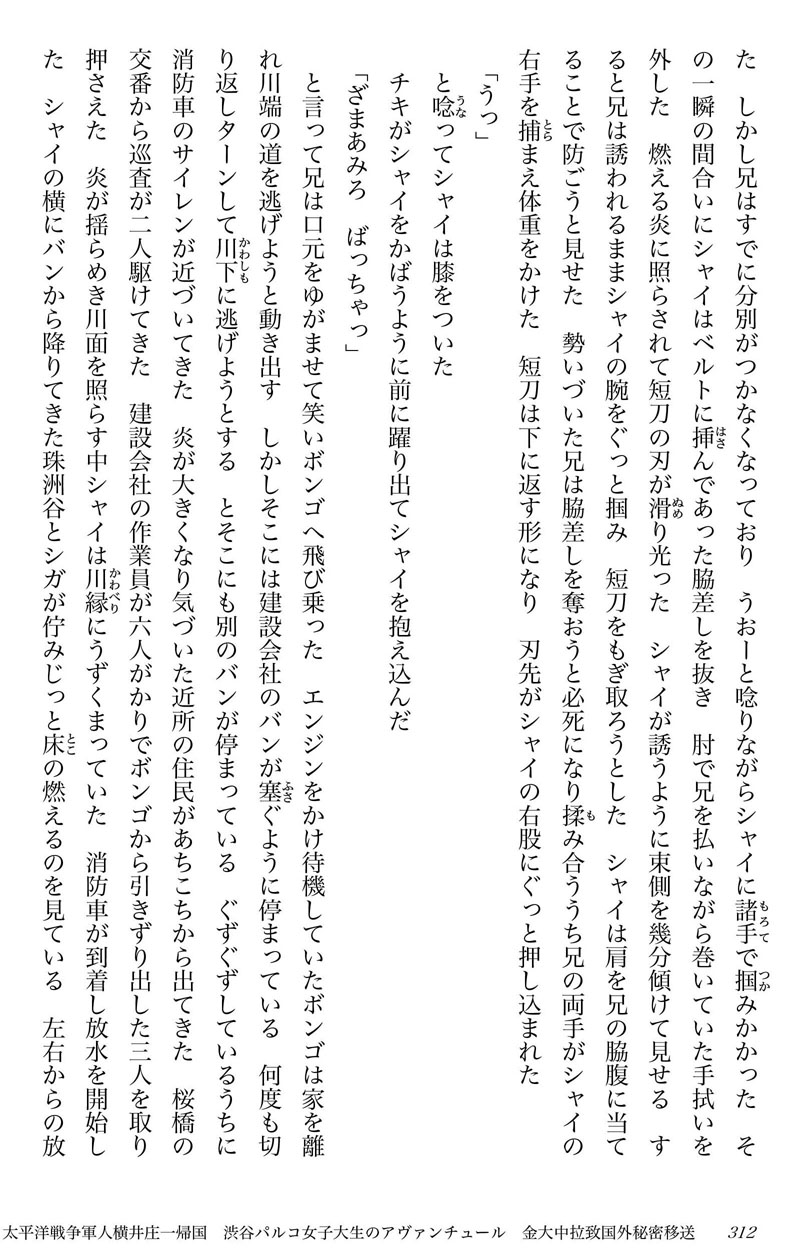 た　しかし兄はすでに分別がつかなくなっており　うおーと唸りながらシャイに諸手で掴みかかった　そ
の一瞬の間合いにシャイはベルトに挿んであった脇差しを抜き　肘で兄を払いながら巻いていた手拭いを
外した　燃える炎に照らされて短刀の刃が滑り光った　シャイが誘うように束側を幾分傾けて見せる　す
ると兄は誘われるままシャイの腕をぐっと掴み　短刀をもぎ取ろうとした　シャイは肩を兄の脇腹に当て
ることで防ごうと見せた　勢いづいた兄は脇差しを奪おうと必死になり揉み合ううち兄の両手がシャイの
右手を捕まえ体重をかけた　短刀は下に返す形になり　刃先がシャイの右股にぐっと押し込まれた
「うっ」
と唸ってシャイは膝をついた
チキがシャイをかばうように前に躍り出てシャイを抱え込んだ
「ざまあみろ　ばっちゃっ」
と言って兄は口元をゆがませて笑いボンゴへ飛び乗った　エンジンをかけ待機していたボンゴは家を離
れ川端の道を逃げようと動き出す　しかしそこには建設会社のバンが塞ぐように停まっている　何度も切
り返しターンして川下に逃げようとする　とそこにも別のバンが停まっている　ぐずぐずしているうちに
消防車のサイレンが近づいてきた　炎が大きくなり気づいた近所の住民があちこちから出てきた　桜橋の
交番から巡査が二人駆けてきた　建設会社の作業員が六人がかりでボンゴから引きずり出した三人を取り
押さえた　炎が揺らめき川面を照らす中シャイは川縁にうずくまっていた　消防車が到着し放水を開始し
た　シャイの横にバンから降りてきた珠洲谷とシガが佇みじっと床の燃えるのを見ている　左右からの放
太平洋戦争軍人横井庄一帰国　渋谷パルコ女子大生のアヴァンチュール　金大中拉致国外秘密移送　312